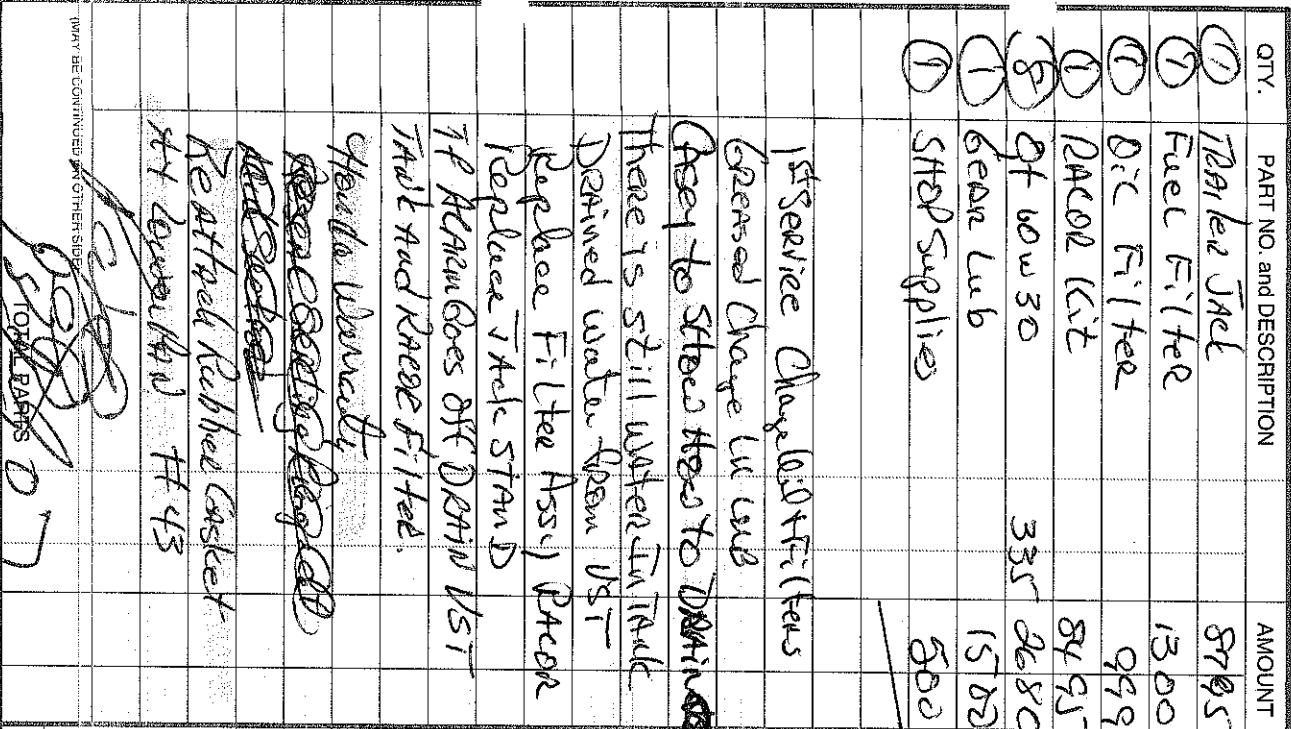 QTY. PART NO. and DESCRIPTION AMOUNT
(1) TRAILER JACK 8795
(1) Fuel Filter 1300
(1) OIL FILTER 999
(1) RACOR Kit 8495
(8) Qt 10w30 335 2680
(1) GEAR Lub 1500
(1) SHOP Supplies 500
1st Service Change oil + Filters
GREASED Change LU LUB
to Show How to DRAIN
There is still water in Tank
DRAINED water from VST
Replace Filter Assy RACOR
Replace JACK STAND
IF ALARM Goes off DRAIN VST
TANK And RACOR Filter.
Honda Warranty
ReAttach Rubber Gasket
At Lower #43
(MAY BE CONTINUED ON OTHER SIDE)
TOTAL PARTS 0